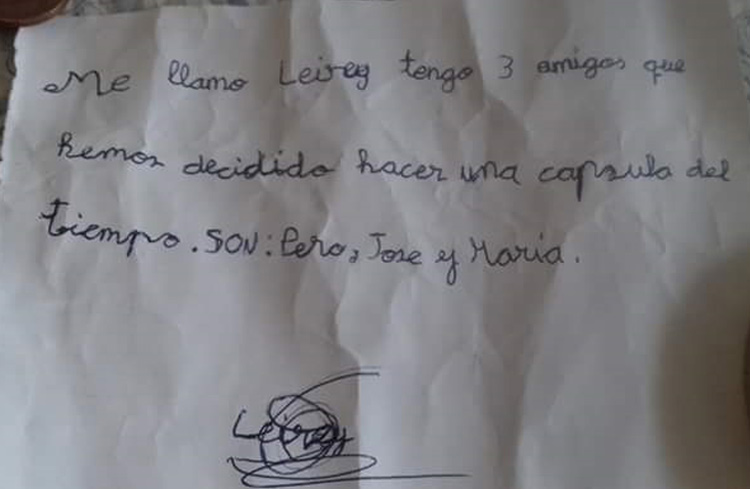 Me llamo Leirey tengo 3 amigos que
hemos decidido hacer una capsula del
tiempo. SON: Pero, Jose y Maria.
Leirey